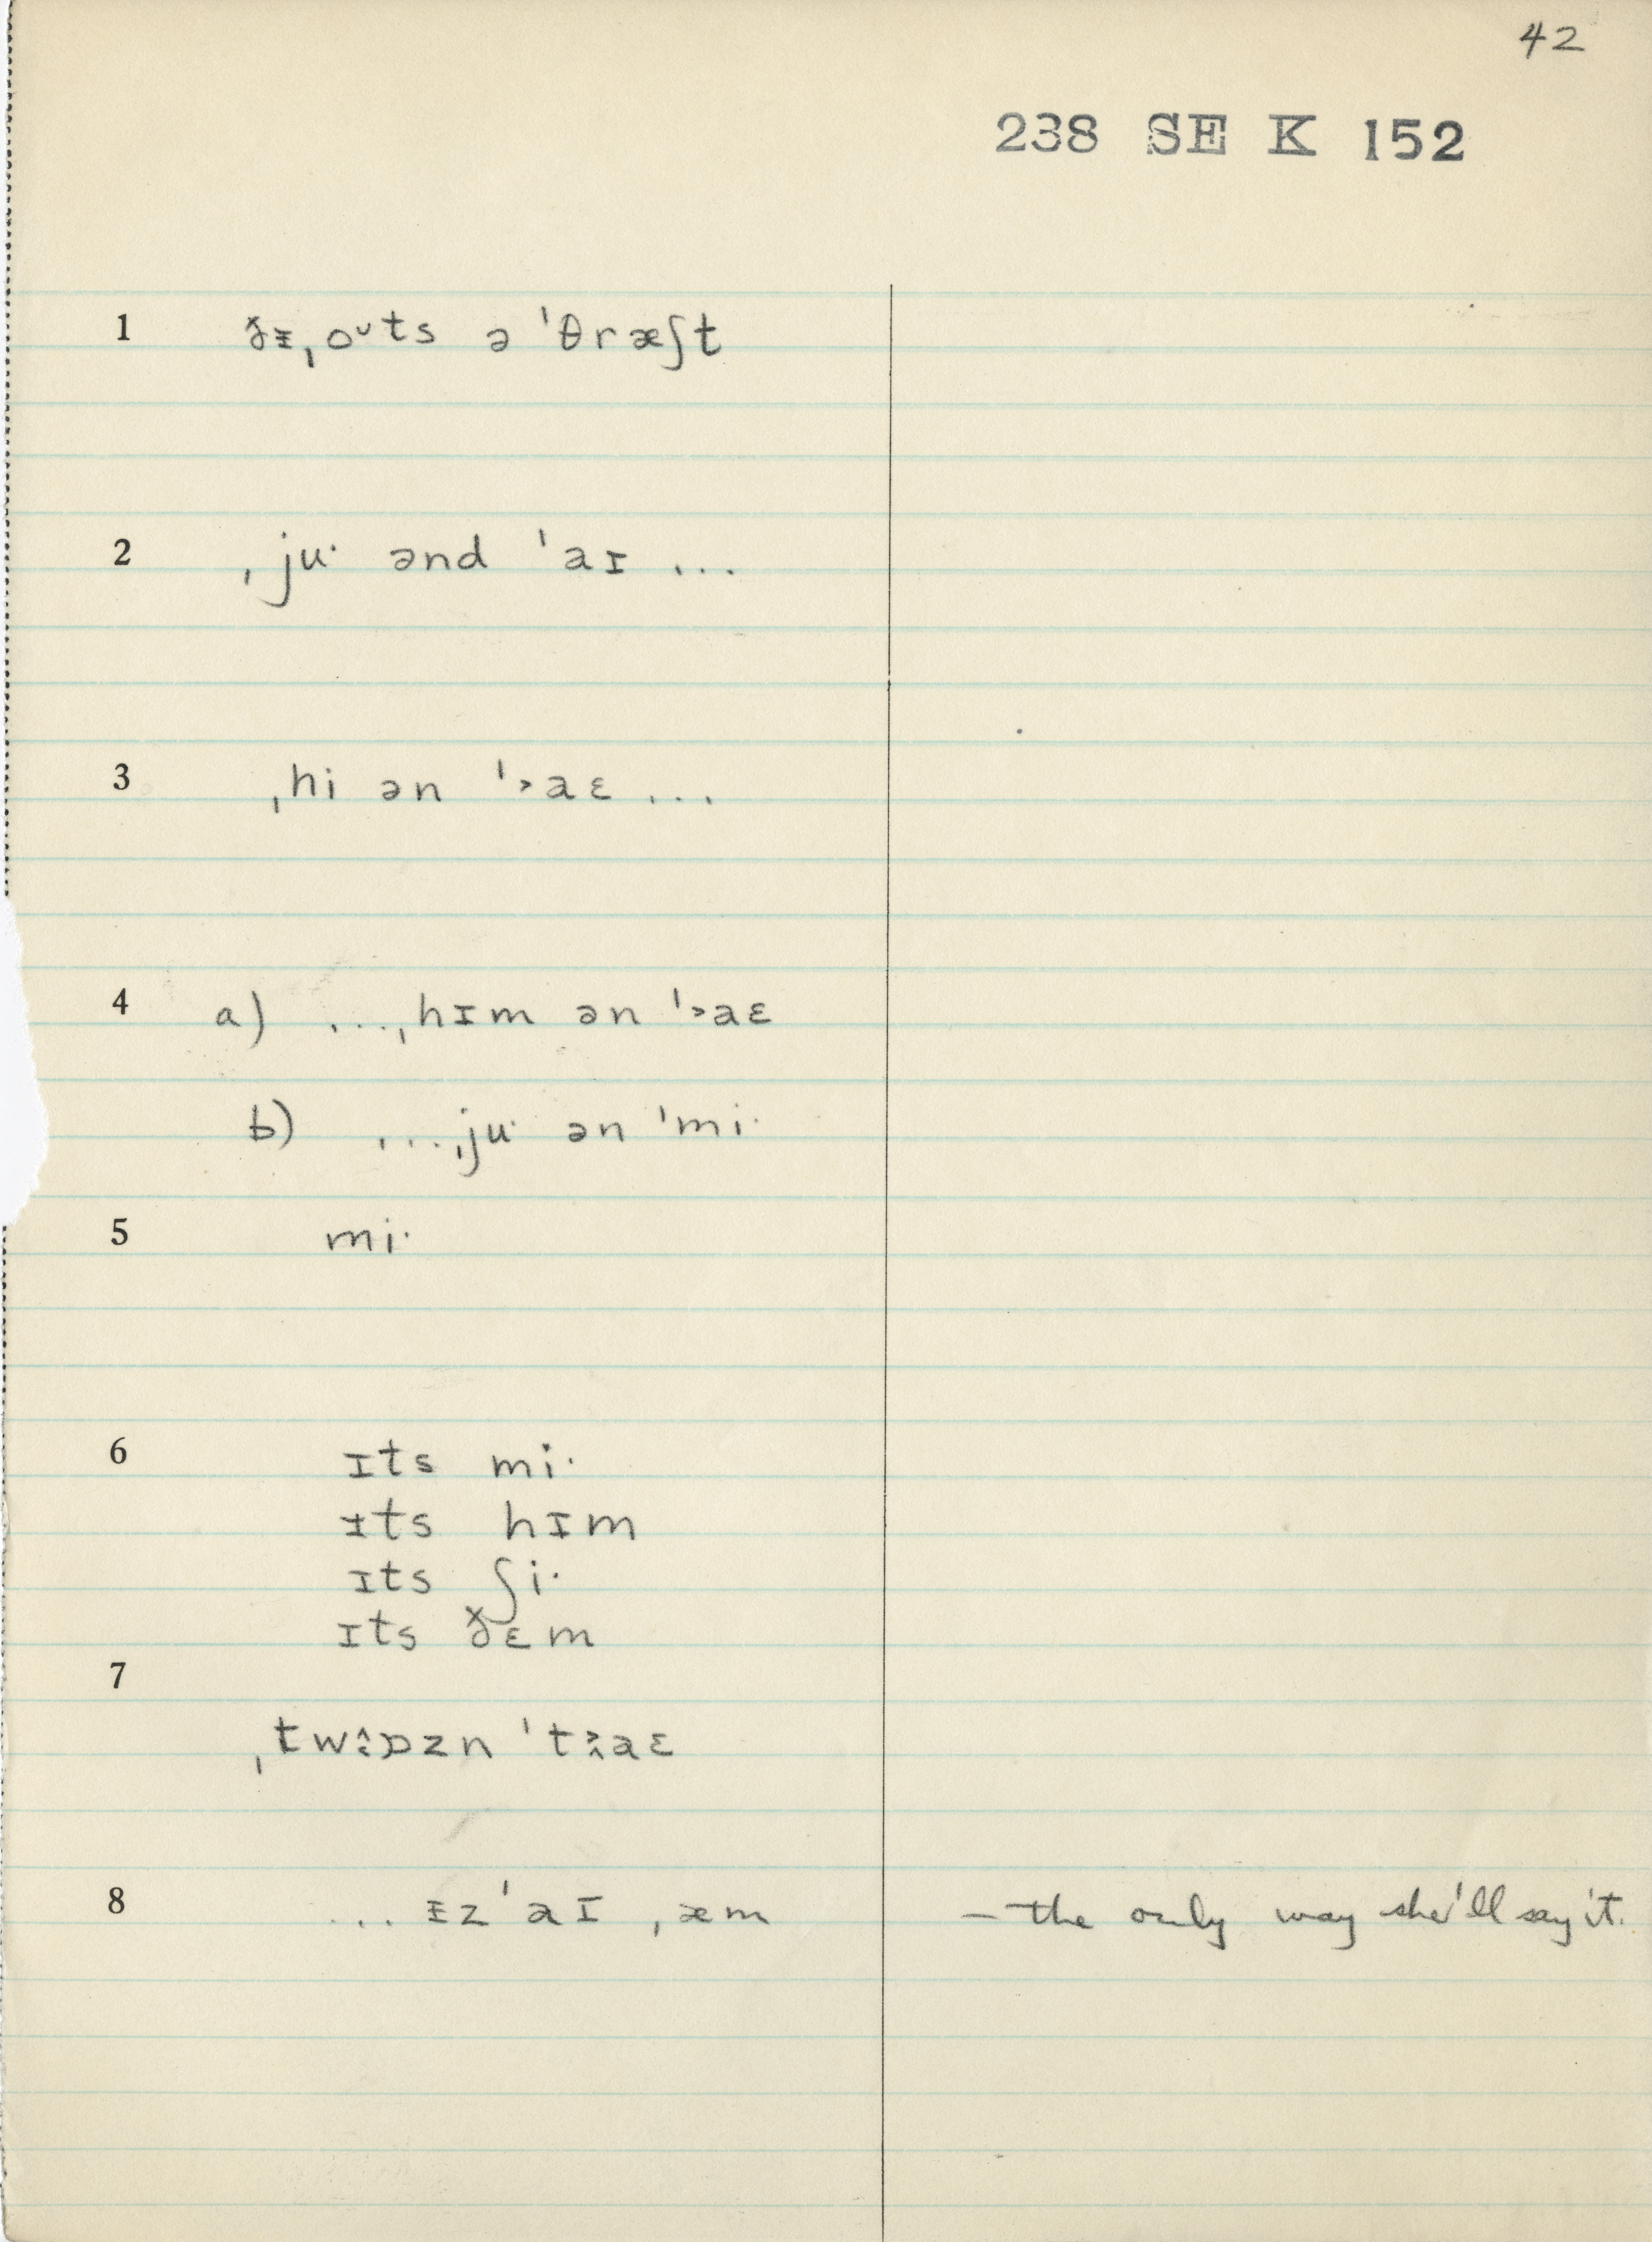 42
238 SE K 152
1 ðᵻˌoᶷts ə ˈθræʃt
2 ˌjuˑ ənd ˈaɪ ...
3 ˌhi ən ˈ˃aɛ ...
4 a) ...ˌhɪm ən ˈ˃aɛ
b) ...ˌjuˑ ən ˈmiˑ
5 miˑ
6 ɪts miˑ
ɪts hɪm
ɪts ʃiˑ
ɪts ðɛm
7
ˌtw ɒzn ˈt aɛ
8 ... ᵻz ˈaɪ ˌæm — the only way she'll say it.